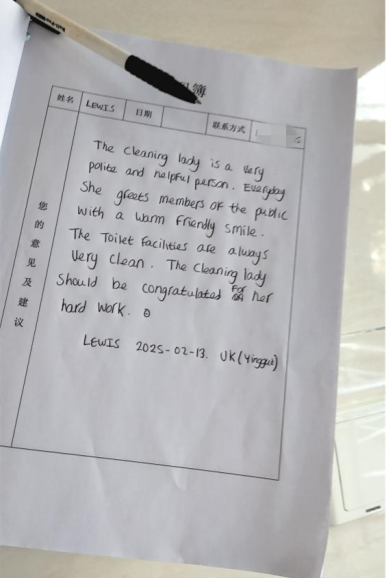 簿
姓名 LEWIS 日期 联系方式
The cleaning lady is a very
polite and helpful person. Everyday
She greets members of the public
with a warm friendly smile.
The Toilet facilities are always
Very clean. The cleaning lady
Should be congratulated For her
hard work.
LEWIS 2025-02-13. UK (Yingguo)
您的意见及建议